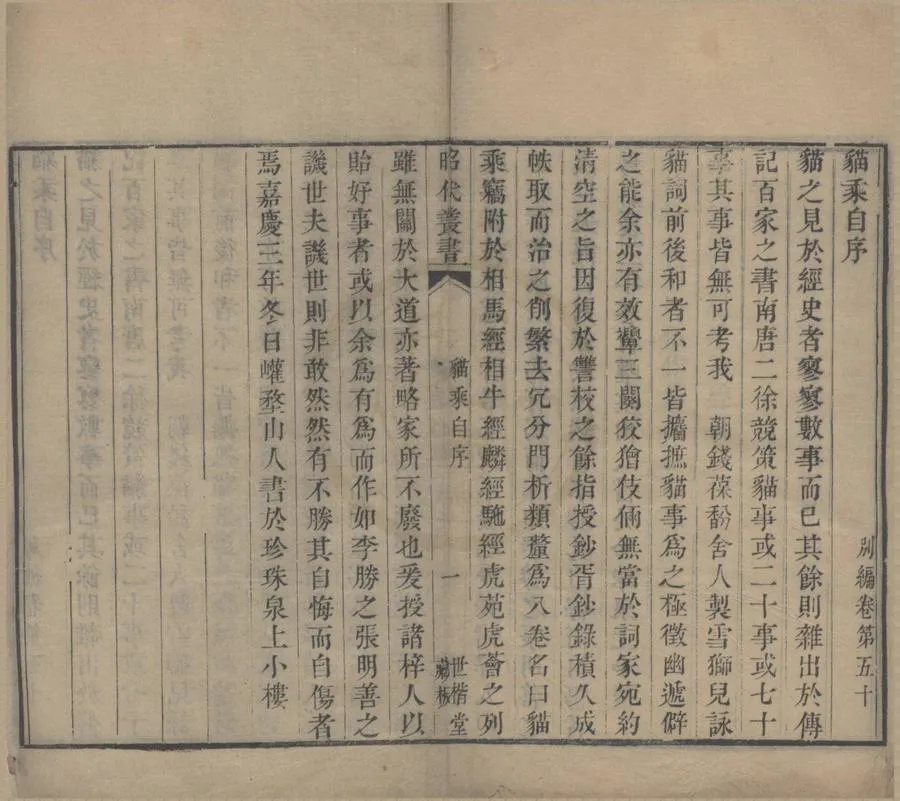 貓乘自序
別編卷第五十
貓之見於經史者寥寥數事而已其餘則雜出於傳
記百家之書南唐二徐競策貓事或二十事或七十
事其事皆無可考我　朝錢葆馚舍人製雪獅兒詠
貓詞前後和者不一皆攟摭貓事為之極徵幽遞僻
之能余亦有效顰三闋狡獪伎倆無當於詞家宛約
清空之旨因復於讐校之餘指授鈔胥鈔錄積久成
帙取而治之削繁去冗分門析類釐為八卷名曰貓
乘竊附於相馬經相牛經麟經駞經虎苑虎薈之列
昭代叢書
貓乘自序
一
世楷堂
藏板
雖無關於大道亦著略家所不廢也爰授諸梓人以
貽好事者或以余為有為而作如李勝之張明善之
譏世夫譏世則非敢然然有不勝其自悔而自傷者
焉嘉慶三年冬日巏嵍山人書於珍珠泉上小樓